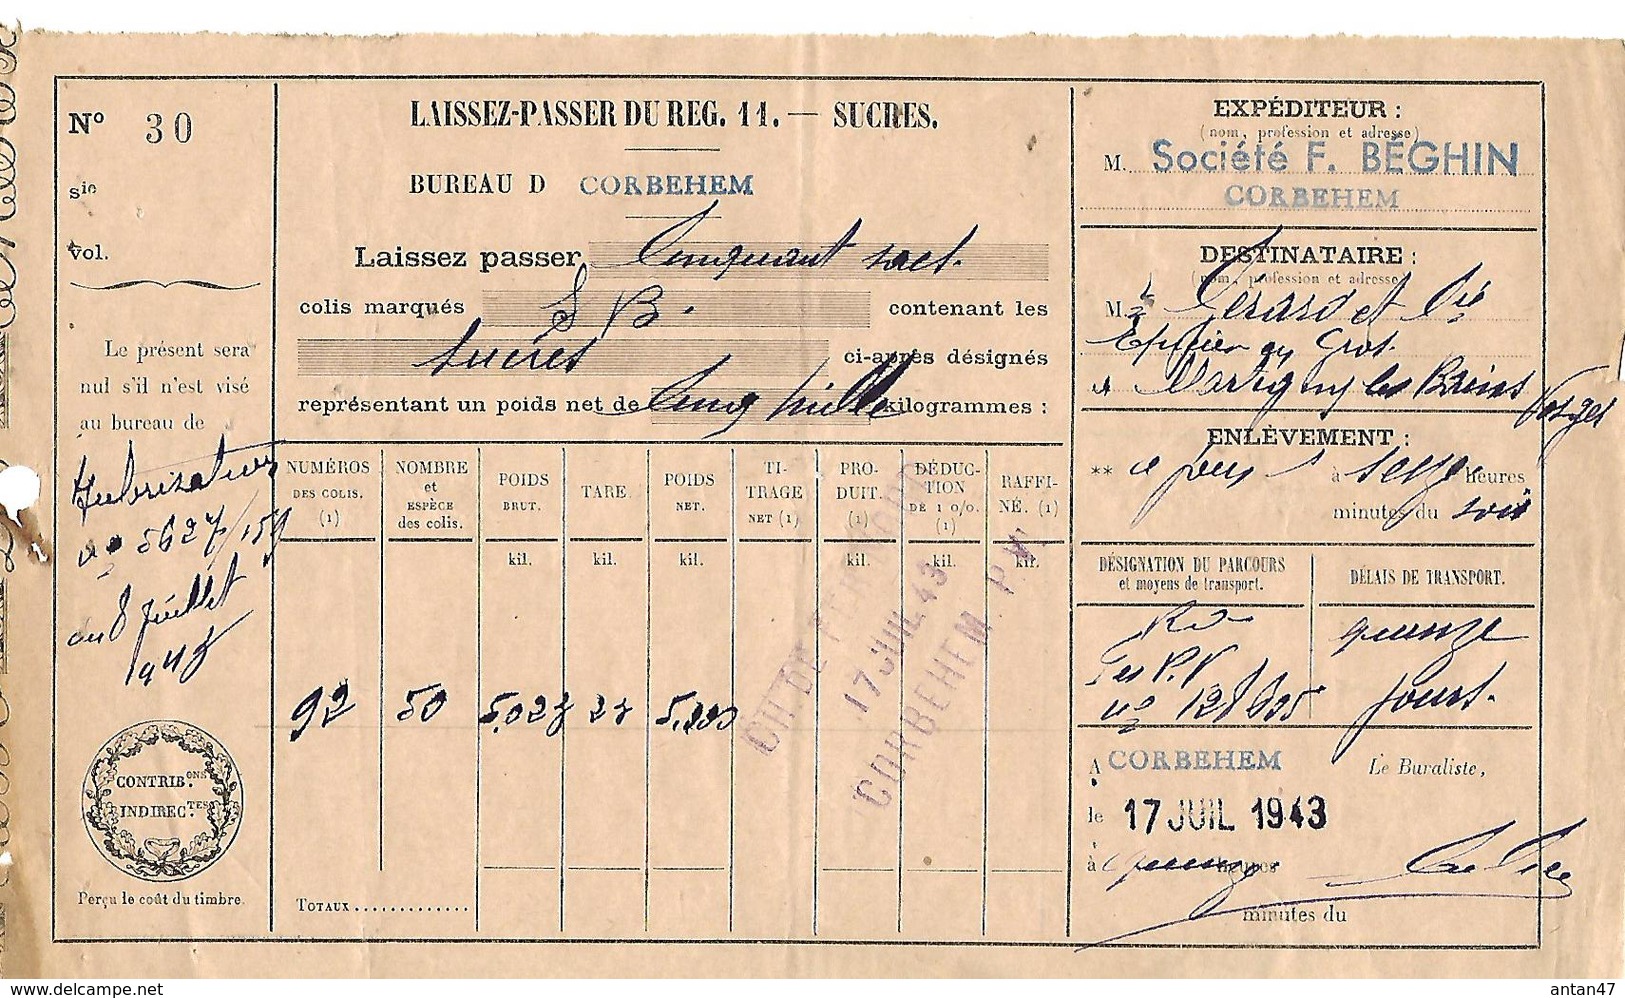 Nº 30
sie
vol.
Le présent sera
nul s'il n'est visé
au bureau de
Autorisation
nº 5627/159
du 8 Juillet
1943
CONTRIB.ONS
INDIREC.TES
Perçu le coût du timbre.
LAISSEZ-PASSER DU REG. 11. — SUCRES.
BUREAU D CORBEHEM
Laissez passer Cinquant sacs.
colis marqués S B. contenant les
sucres ci-après désignés
représentant un poids net de Cinq mille kilogrammes :
NUMÉROS DES COLIS. (1)
NOMBRE et ESPÈCE des colis.
POIDS BRUT.
TARE.
POIDS NET.
TITRAGE NET (1)
PRODUIT. (1)
DÉDUCTION DE 1 0/0. (1)
RAFFINÉ. (1)
kil. kil. kil. kil. kil. kil.
92 50 5,027 27 5,000
TOTAUX.............
CH. DE FER NORD
17 JUIL 43
CORBEHEM P.V.
EXPÉDITEUR :
(nom, profession et adresse)
M. Société F. BEGHIN
CORBEHEM
DESTINATAIRE :
(nom, profession et adresse)
M. Gérard et Cie
Epicier en Gros.
à Martigny les Bains Vosges
ENLÈVEMENT :
** ce jour à seize heures
minutes du soir
DÉSIGNATION DU PARCOURS
et moyens de transport.
DÉLAIS DE TRANSPORT.
quinze
P.V
jours.
A CORBEHEM
Le Buraliste,
le 17 JUIL 1943
à quinze heures
minutes du
delcampe.net
antan47